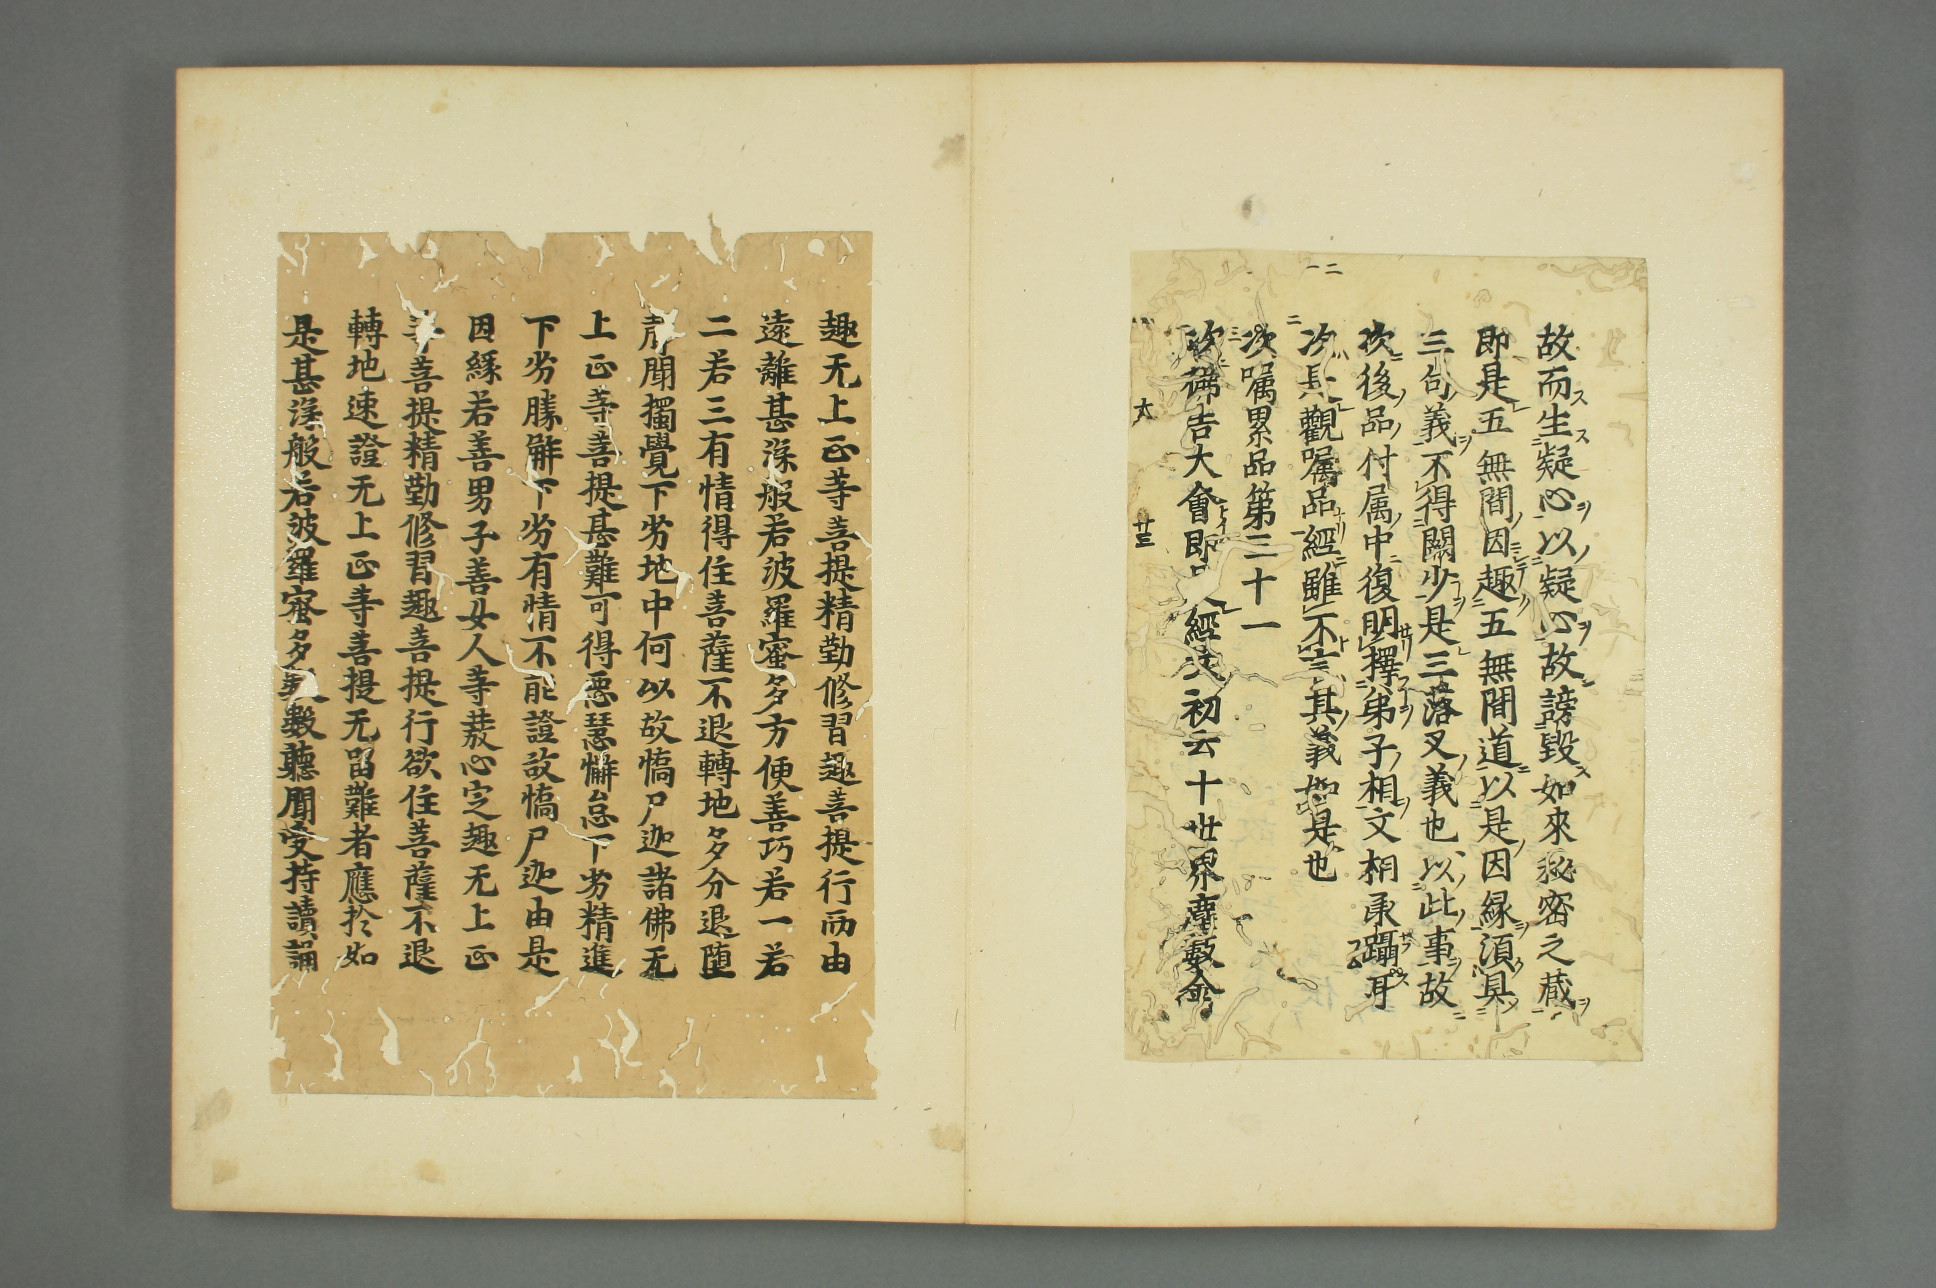 故而生疑心以疑心故謗毀如來秘密之藏
即是五無間因趣五無間道以是因緣須具
三句義不得闕少是三落叉義也以此事故
次後品付属中復明擇弟子相文相承躡耳
次觀嘱品經雖不言其義如是也
次嘱累品第三十一
次佛告大會即經次初云十世界塵數金
六
廿三
趣无上正等菩提精勤修習趣菩提行而由
遠離甚深般若波羅蜜多方便善巧若一若
二若三有情得住菩薩不退轉地多分退堕
聲聞獨覺下劣地中何以故憍尸迦諸佛无
上正等菩提甚難可得惡慧懈怠下劣精進
下劣勝解下劣有情不能證故憍尸迦由是
因緣若善男子善女人等發心定趣无上正
等菩提精勤修習趣菩提行欲住菩薩不退
轉地速證无上正等菩提无留難者應於如
是甚深般若波羅蜜多數數聽聞受持讀誦